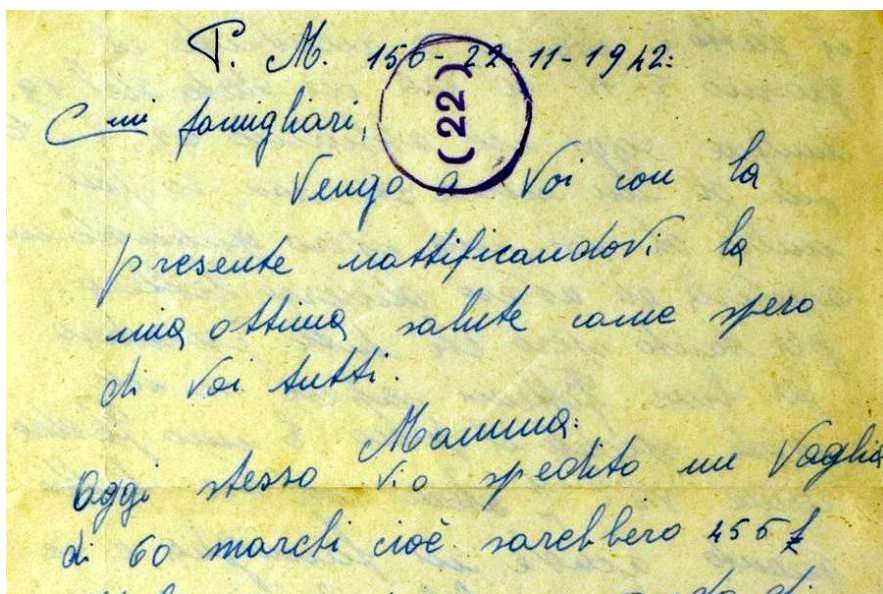 P. M. 156 - 22-11-1942:
(22)
C mi famigliari,
Vengo a Voi con la
presente nottificandovi la
mia ottima salute come spero
di Voi tutti.
Mamma:
Oggi stesso Vi o spedito un Vaglia
di 60 marchi cioè sarebbero 456 £